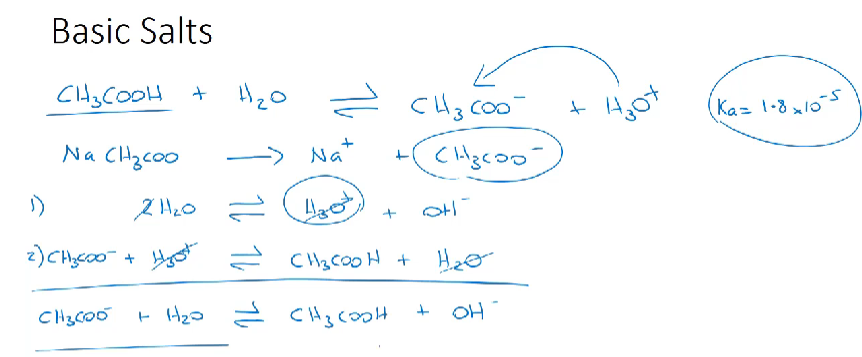 Basic Salts
CH₃COOH + H₂O ⇌ CH₃COO⁻ + H₃O⁺ Ka = 1.8 x10⁻⁵
Na CH₃COO ⟶ Na⁺ + CH₃COO⁻
1) 2H₂O ⇌ H₃O⁺ + OH⁻
2) CH₃COO⁻ + H₃O⁺ ⇌ CH₃COOH + H₂O
CH₃COO⁻ + H₂O ⇌ CH₃COOH + OH⁻